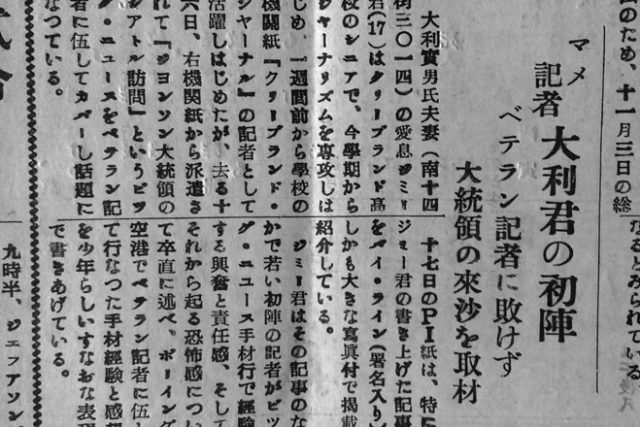 のため、十一月三日の総
なるとみられている
マメ記者 大利君の初陣
ベテラン記者に敗けず
大統領の來沙を取材
大利實男氏夫妻(南十四
街三〇一四)の愛息ジミー
君(17)はクリーブランド高
校のシニアで、今學期から
ジャーナリズムを専攻しは
じめ、一週間前から學校の
機關紙『クリーブランド・
ジャーナル』の記者として
活躍しはじめたが、去る十
六日、右機関紙から派遣さ
れて『ジョンソン大統領の
シアトル訪問』というビツ
グ・ニュースをベテラン記
者に伍してカバーし話題に
なつている。
十七日のPI紙は、特
ジミー君の書き上げた記事
をバイ・ライン(署名入り
しかも大きな寫真付で掲載
紹介している。
ジミー君はその記事のな
かで若い初陣の記者がビツ
グ・ニユース手材行で経験
する興奮と責任感、そして
それから起る恐怖感につい
て卒直に述べ、ボーイング
空港でベテラン記者に伍し
て行なつた手材経験と感想
を少年らしいすなおな表現
で書きあげている。
九時半、ジエフアソン